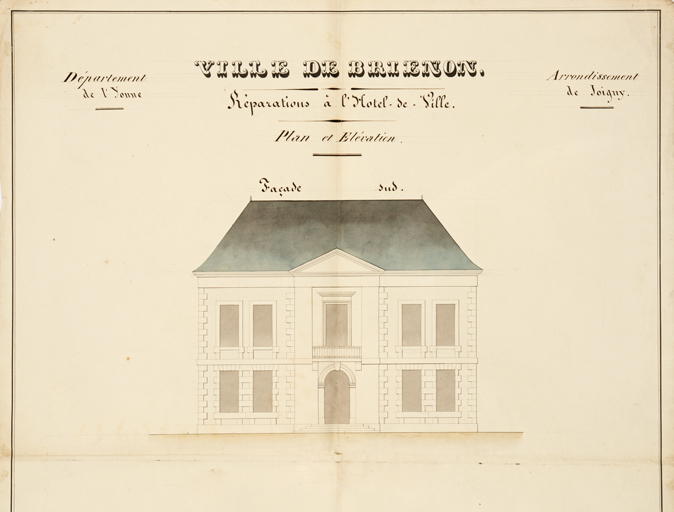 Département
de l'Yonne
VILLE DE BRIENON.
Réparations à l'Hotel-de-Ville.
Plan et Elévation.
Arrondissement
de Joigny.
Façade sud.